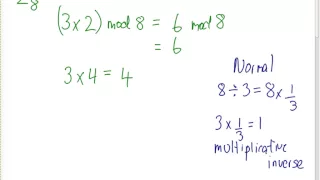 (3×2) mod 8 = 6 mod 8
= 6
3×4 = 4
Normal
8÷3 = 8×1/3
3×1/3 = 1
multiplicative
inverse